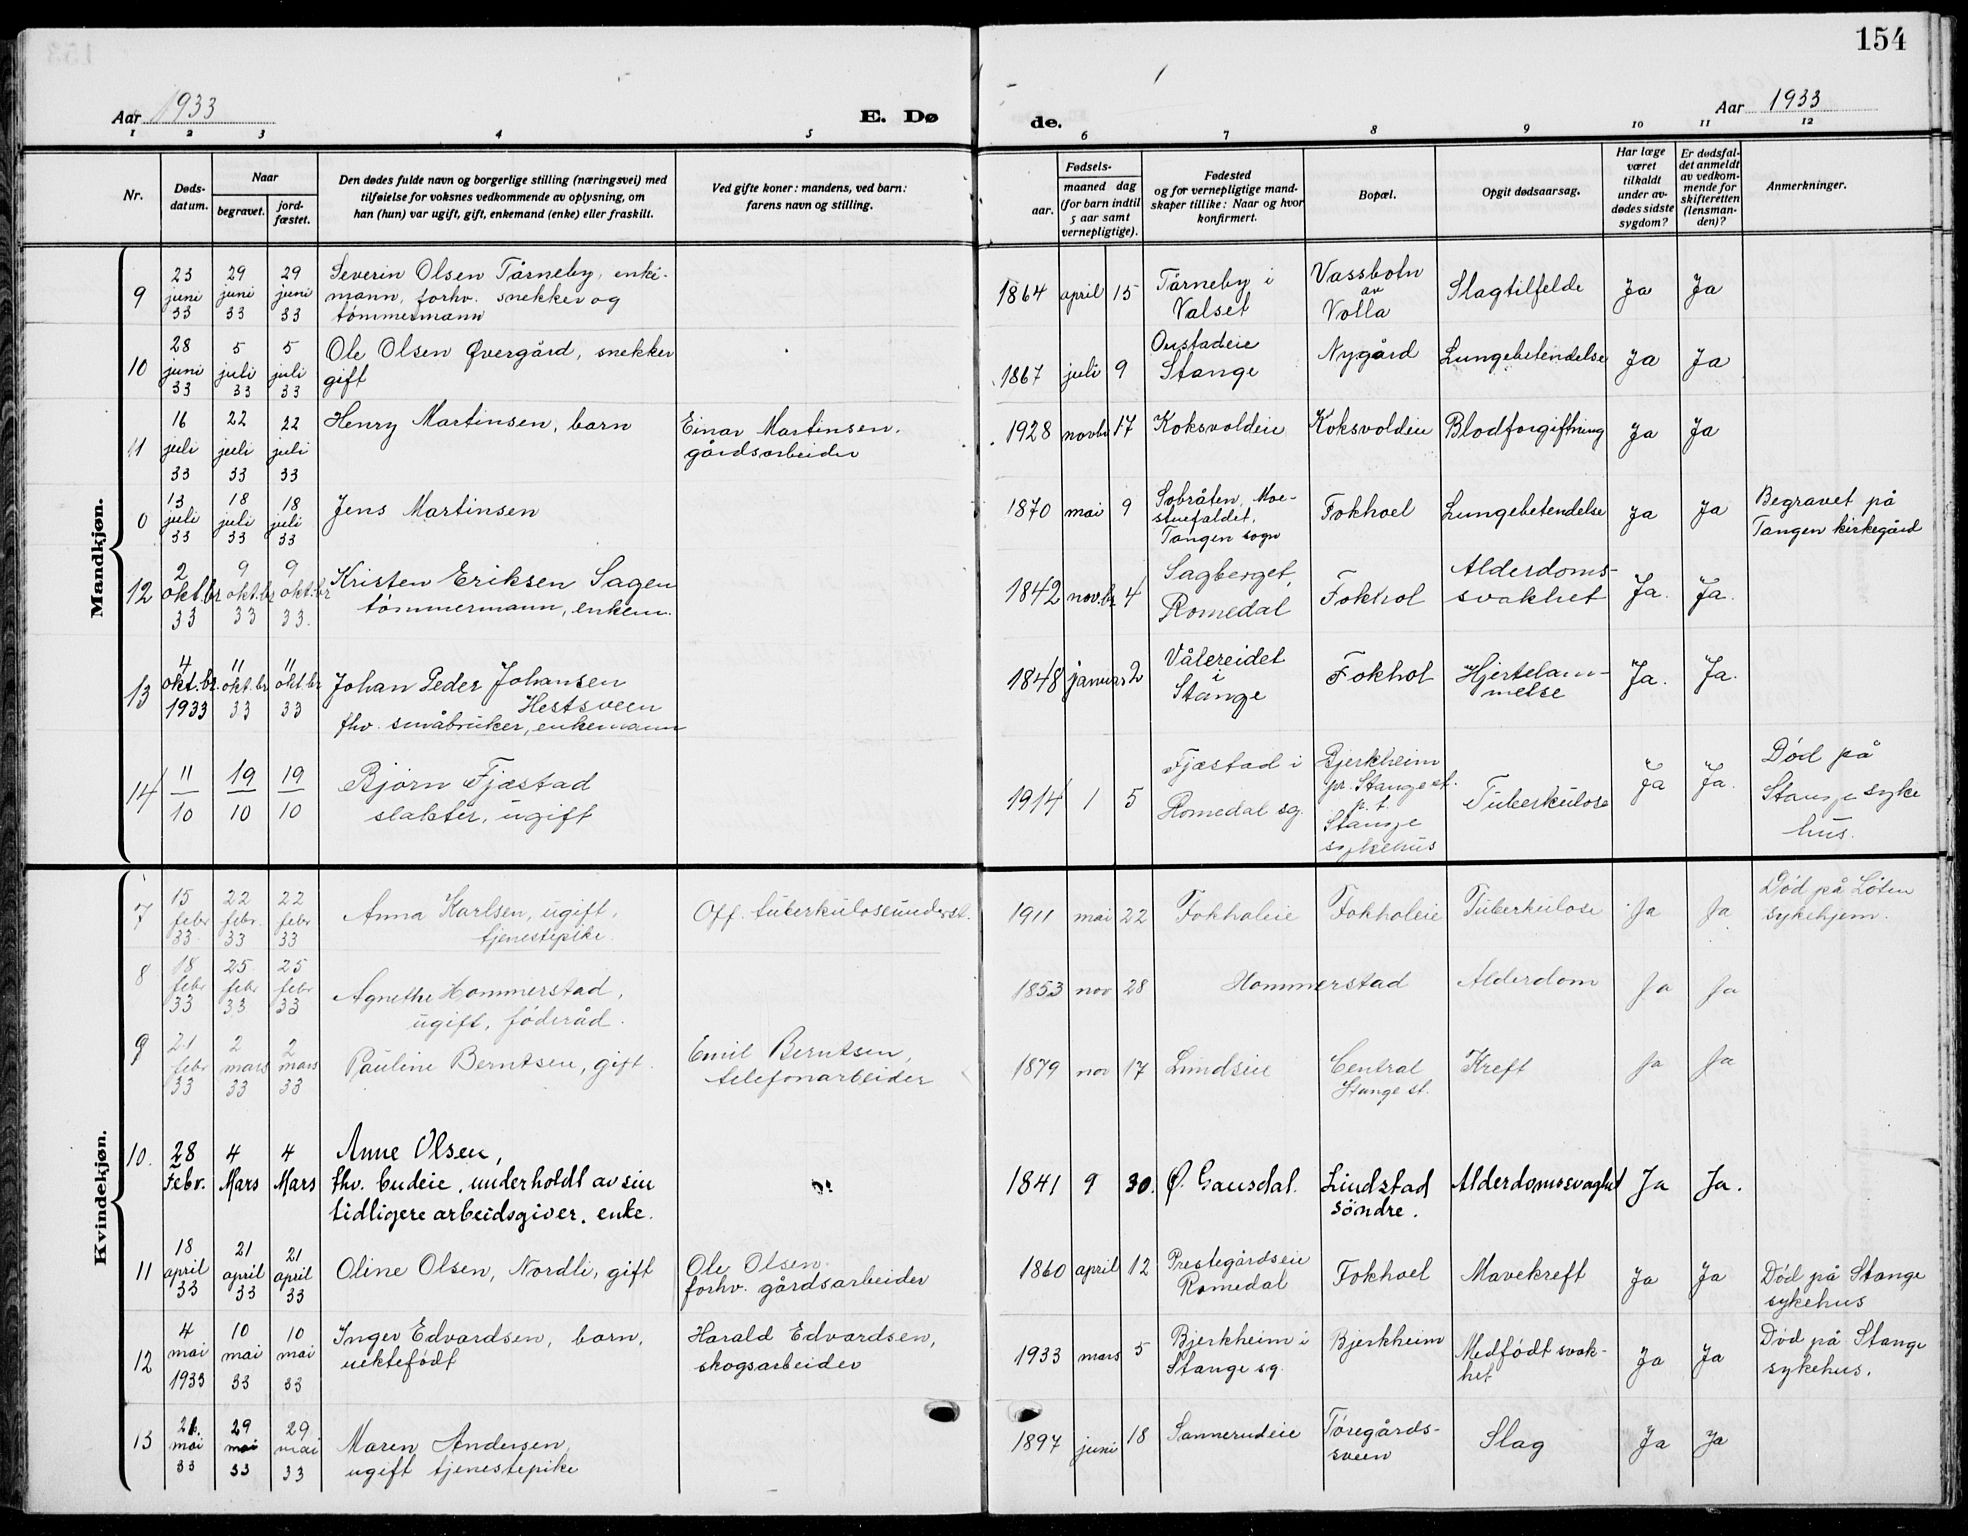 154
Aar 1933
E. Dø
de.
Aar 1933
1 2 3 4 5 6 7 8 9 10 11 12
Nr.
Døds-
datum.
Naar
begravet.
jord-
fæstet.
Den dødes fulde navn og borgerlige stilling (næringsvei) med
tilføielse for voksnes vedkommende av oplysning, om
han (hun) var ugift, gift, enkemand (enke) eller fraskilt.
Ved gifte koner: mandens, ved barn:
farens navn og stilling.
Fødsels-
aar.
maaned dag
(for barn indtil
5 aar samt
vernepligtige).
Fødested
og for vernepligtige mand-
skaper tillike: Naar og hvor
konfirmert.
Bopæl.
Opgit dødsaarsag.
Har læge
været
tilkaldt
under av-
dødes sidste
sygdom?
Er dødsfal-
det anmeldt
av vedkom-
mende for
skifteretten
(lensman-
den)?
Anmerkninger.
Mandkjøn.
9
23
juni
33
29
juni
33
29
juni
33
Severin Olsen Tårneby, enke-
mann, forhv. snekker og
tømmermann
1864 april 15
Tårneby i
Valset
Vassbotn
av
Volla
Slagtilfelde
Ja Ja
10
28
juni
33
5
juli
33
5
juli
33
Ole Olsen Øvergård, snekker
gift
1867 juli 9
Oustadeie
Stange
Nygård
Lungebetendelse
Ja Ja
11
16
juli
33
22
juli
33
22
juli
33
Henry Martinsen, barn
Einar Martinsen.
gårdsarbeider
1928 novbr 17
Koksvoldeie
Koksvoldeie
Blodforgiftning
Ja Ja
0
13
juli
33
18
juli
33
18
juli
33
Jens Martinsen
1870 mai 9
Sobråten, Moe-
stuefaldet.
Tangen sogn
Fokhoel
Lungebetendelse
Ja Ja
Begravet på
Tangen kirkegård
12
2
okt.br
33
9
okt.br
33
9
okt.br
33.
Kristen Eriksen Sagen
tømmermann, enkem.
1842 nov.br 4
Sagberget,
Romedal
Fokhol
Alderdoms-
svakhet
Ja. Ja.
13
4
okt.br.
1933
11
okt.br
33
11
okt.br
33
Johan Peder Johansen
Hestsveen
fhv. småbruker, enkemann
1848 januar 2
Vålereidet
i
Stange
Fokhol
Hjertelam-
melse
Ja. Ja.
14
11
10
19
10
19
10
Bjørn Fjæstad
slakter, ugift
1914 1 5
Fjæstad i
Romedal sg.
Bjerkheim
pr. Stange st.
p.t.
Stange
sykehus
Tuberkulose
Ja Ja.
Død på
Stange syke
hus.
Kvindekjøn.
7
15
febr
33.
22
febr.
33
22
febr
33
Anna Karlsen, ugift,
tjenestepike.
Off. tuberkuloseunderst.
1911 mai 22
Fokholeie
Fokholeie
Tuberkulose
Ja Ja
Død på Løten
sykehjem.
8
18
febr
33
25
febr
33
25
febr
33
Agnethe Hommerstad,
ugift, føderåd.
1853 nov 28
Hommerstad
Alderdom
Ja Ja
9
21
febr
33
2
mars
33
2
mars
33
Pauline Berntsen, gift.
Emil Berntsen,
telefonarbeider
1879 nov 17
Lundseie
Central
Stange st.
Kreft
Ja Ja
10.
28
Febr.
4
Mars
4
Mars
Anne Olsen,
fhv. budeie, underholdt av sin
tidligere arbeidsgiver, enke.
1841 9 30.
Ø. Gausdal.
Lindstad
søndre.
Alderdomssvaghet
Ja Ja.
11
18
april
33
21
april
33
21
april
33
Oline Olsen, Nordli, gift
Ole Olsen.
forhv. gårdsarbeider
1860 april 12
Prestegårdseie
Romedal
Fokhoel
Mavekreft
Ja Ja
Død på Stange
sykehus
12
4
mai
1933
10
mai
33
10
mai
33
Inger Edvardsen, barn,
uektefødt
Harald Edvardsen,
skogsarbeider
1933 mars 5
Bjerkheim i
Stange sg.
Bjerkheim
Medfødt svak-
het
Ja Ja
Død på Stange
sykehus.
13
21.
mai
33
29
mai
33
29
mai
33
Maren Andersen,
ugift tjenestepike
1897 juni 18
Sannerudeie
Tøregårds-
sveen
Slag
Ja Ja